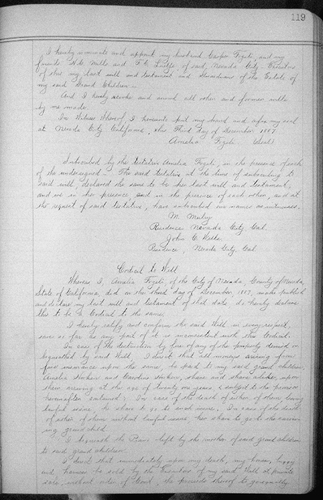 119
I hereby nominate and appoint my husband, Casper Fogeli, and my
friends W. D. Mills and of said, Nevada City, Executors
of this my last will and testament and Guardians of the Estate of
my said Grand Children.
And I hereby revoke and annul all other and former wills
by me made.
In Witness Whereof, I hereunto put my hand and affix my seal
at Nevada City California, this Third day of December 1887.
Amalia Fogeli (Seal)
Subscribed by the Testatrix Amalia Fogeli, in the presence of each
of the undersigned. The said Testatrix at the time of subscribing to
said will, declared the same to be her last will and testament,
and we in her presence and in the presence of each other, and at
the request of said Testatrix, have subscribed our names as witnesses.
M.
Residence Nevada City Cal.
John C.
Residence, Nevada City, Cal.
Codicil to Will
Whereas I, Amalia Fogeli, of the City of Nevada, County of Nevada,
State of California, did on the third day of December 1887, make publish
and declare my last will and testament of that date, do hereby declare
this to be a Codicil to the same.
I hereby ratify and confirm the said Will in every respect,
save so far as any part of it is inconsistent with this Codicil.
In case of the destruction by fire of any of the property devised or
bequeathed by said Will, I direct that all moneys arising from
fire insurance upon the same, be paid to my said grand children,
Amalia and
share at the age of twenty one years, subject to the provision
hereinafter contained: In case of the death of either of them, leaving
lawful issue, the share to go to such issue. In case of the death
of either of them without lawful issue, her share to go to the surviv-
ing grand child.
I bequeath the left by the mother of said grand children
to said grand children.
I direct that immediately upon my death, my horse, buggy
and harness be sold by the Executors of my said Will at private
sale, without order of Court, the proceeds thereof to